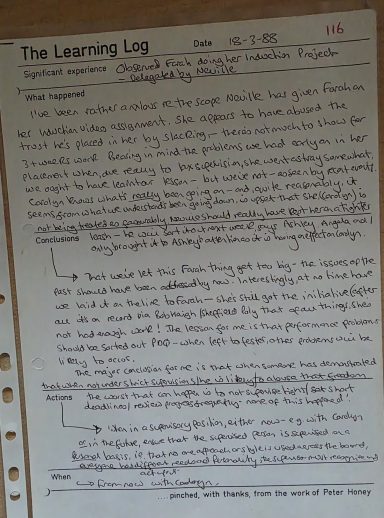 116
The Learning Log Date 18-3-88
Significant experience Observed Farah doing her Induction Project
- Delegated by Neville
What happened
I've been rather anxious re the scope Neville has given Farah on
her induction video assignment. She appears to have abused the
trust he's placed in her by slacking - there's not much to show for
3+ weeks work. Bearing in mind the problems we had early on in her
placement when, due really to lax supervision, she went astray somewhat,
we ought to have learnt our lesson - but we've not - as seen by recent events.
Carolyn knows what's really been going on - and, quite reasonably, it
seems, from what we understand's been going down, is upset that she (Carolyn) is
not being treated as favourably. Neville should really have kept her on a tighter
leash - he will sort it out next week, says Ashley. Angela and I
only brought it to Ashley's attention as it is having an effect on Carolyn.
Conclusions
→ That we've let this Farah thing get too big - the issues of the
past should have been addressed by now. Interestingly, at no time have
we laid it on the line to Farah - she's still got the initiative (after
all it's on record via Rob Haigh/Sheffield Poly that of all things, she's
not had enough work! The lesson for me is that performance problems
should be sorted out PDQ - when left to fester, other problems will be
likely to occur.
The major conclusion for me is that when someone has demonstrated
that when not under strict supervision s/he is likely to abuse that freedom
the worst that can happen is to not supervise tight/set short
deadlines/review progress frequently - none of this happened!
Actions
→ When in a supervisory position, either now - e.g. with Carolyn
or in the future, ensure that the supervised person is supervised on a
personal basis, i.e. that no one approach or style is used across the board,
everyone has different needs and personality, the supervisor must recognise and
act upon.
When
→ From now with Carolyn.
.... pinched, with thanks, from the work of Peter Honey